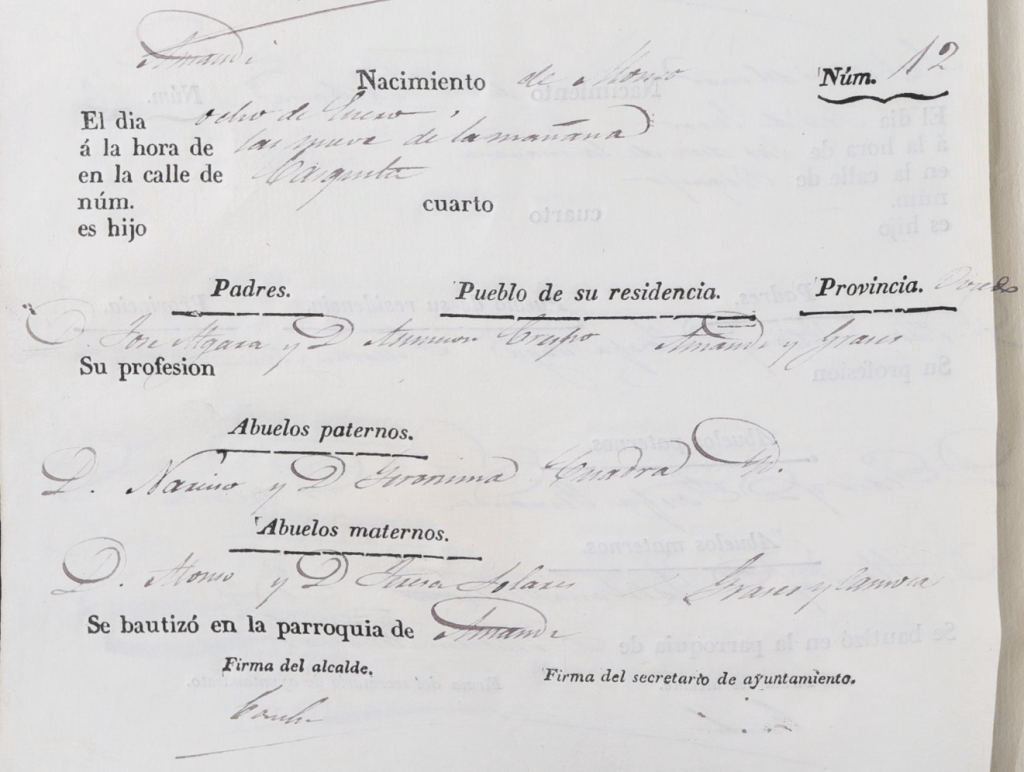 Amandi
Nacimiento de Alonso Núm. 12
El dia ocho de Enero
á la hora de las nueve de la mañana
en la calle de
núm. cuarto
es hijo
Padres. Pueblo de su residencia. Provincia. Oviedo
D. Jose y D Asuncion Crespo Amandi y Grases
Su profesion
Abuelos paternos.
D. Narciso y D Geronima Cuadra Yd.
Abuelos maternos.
D. Alonso y D Teresa Solares Grases y
Se bautizó en la parroquia de Amandi
Firma del alcalde. Firma del secretario de ayuntamiento.